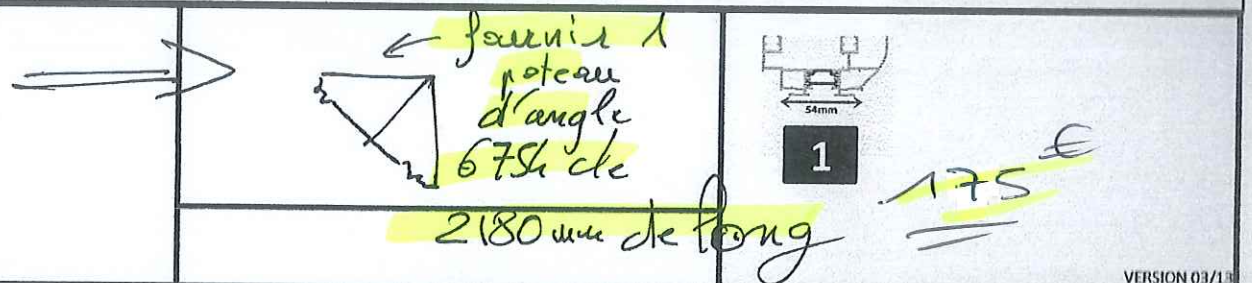 fournir 1
poteau
d'angle
6754 de
2180 mm de long
54mm
1
175 €
VERSION 03/13